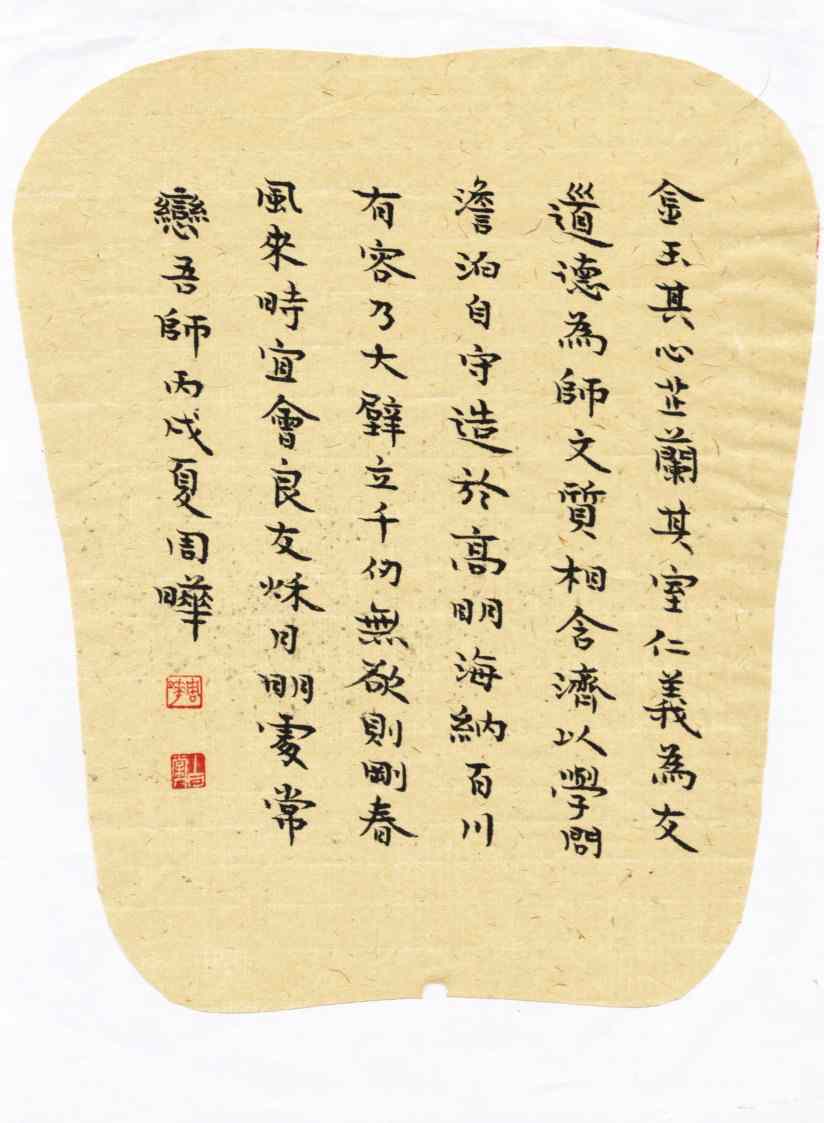 金玉其心芷蘭其室仁義為友
道德為師文質相含濟以學問
澹泊自守造於高明海納百川
有容乃大壁立千仞無欲則剛春
風來時宜會良友秌月明處常
戀吾師丙戌夏周曄